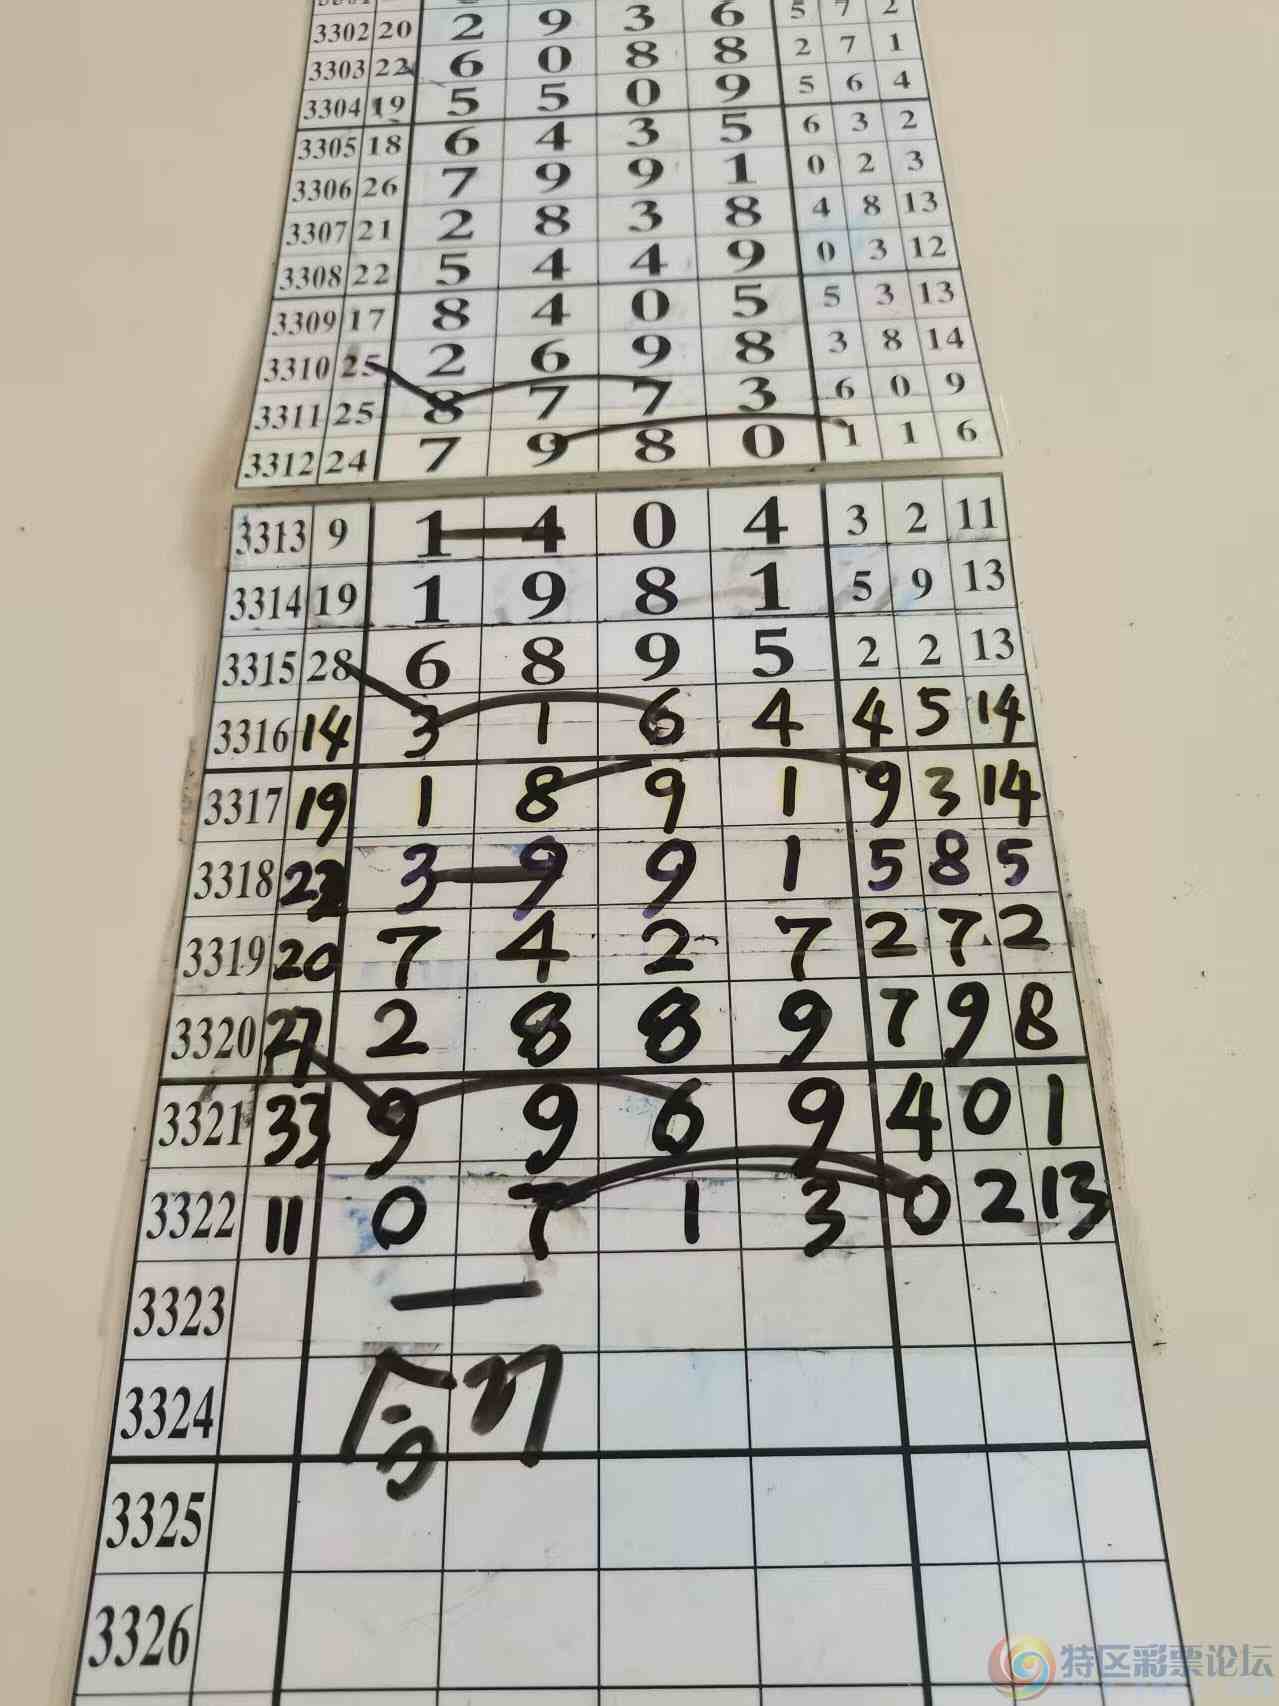 3302 20 2 9 3 6 5 7 2
3303 22 6 0 8 8 2 7 1
3304 19 5 5 0 9 5 6 4
3305 18 6 4 3 5 6 3 2
3306 26 7 9 9 1 0 2 3
3307 21 2 8 3 8 4 8 13
3308 22 5 4 4 9 0 3 12
3309 17 8 4 0 5 5 3 13
3310 25 2 6 9 8 3 8 14
3311 25 8 7 7 3 6 0 9
3312 24 7 9 8 0 1 1 6
3313 9 1 4 0 4 3 2 11
3314 19 1 9 8 1 5 9 13
3315 28 6 8 9 5 2 2 13
3316 14 3 1 6 4 4 5 14
3317 19 1 8 9 1 9 3 14
3318 22 3 9 9 1 5 8 5
3319 20 7 4 2 7 2 7 2
3320 27 2 8 8 9 7 9 8
3321 33 9 9 6 9 4 0 1
3322 11 0 7 1 3 0 2 13
3323
3324
3325
3326
特区彩票论坛